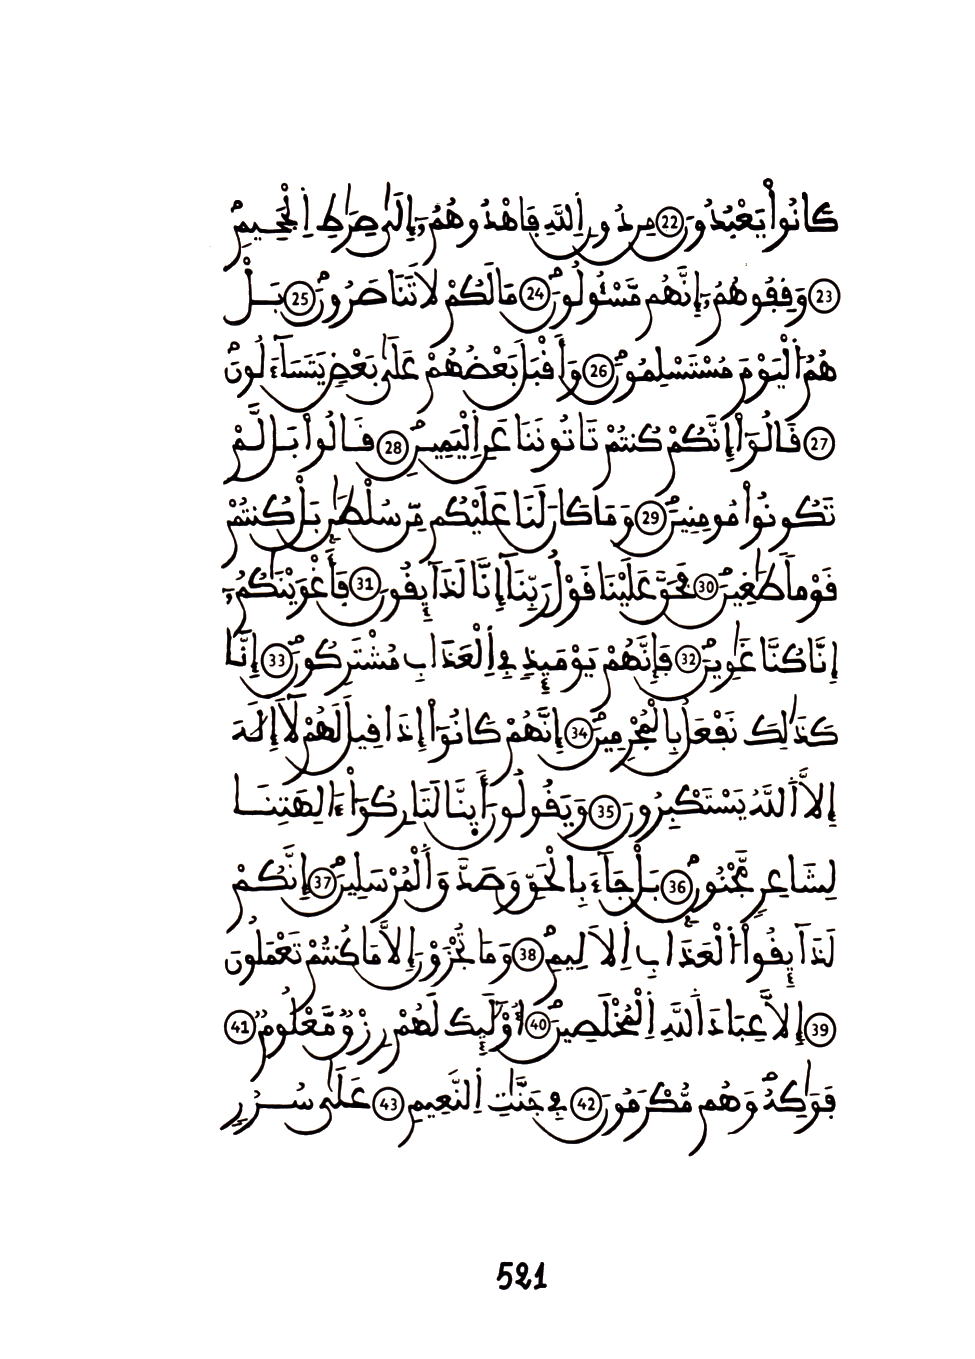 كَانُواْ يَعْبُدُونَ 22 مِن دُونِ اِ۬للَّهِ فَاهْدُوهُمُۥٓ إِلَىٰ صِرَٰطِ اِ۬لْجَحِيمِۖ
23 وَقِفُوهُمُۥٓ إِنَّهُم مَّسْـُٔولُونَۖ 24 مَا لَكُمْ لَا تَنَاصَرُونَۖ 25 بَلْ
هُمُ اُ۬لْيَوْمَ مُسْتَسْلِمُونَۖ 26 وَأَقْبَلَ بَعْضُهُمْ عَلَىٰ بَعْضٖ يَتَسَآءَلُونَۖ
27 قَالُوٓاْ إِنَّكُمْ كُنتُمْ تَاتُونَنَا عَنِ اِ۬لْيَمِينِۖ 28 قَالُواْ بَل لَّمْ
تَكُونُواْ مُومِنِينَۖ 29 وَمَا كَانَ لَنَا عَلَيْكُم مِّن سُلْطَٰنِۢ بَلْ كُنتُمْ
قَوْماٗ طَٰغِينَۖ 30 فَحَقَّ عَلَيْنَا قَوْلُ رَبِّنَآ إِنَّا لَذَآئِقُونَ 31 فَأَغْوَيْنَٰكُمُۥٓ
إِنَّا كُنَّا غَٰوِينَۖ 32 فَإِنَّهُمْ يَوْمَئِذٖ فِے اِ۬لْعَذَابِ مُشْتَرِكُونَۖ 33 إِنَّا
كَذَٰلِكَ نَفْعَلُ بِالْمُجْرِمِينَۖ 34 إِنَّهُمْ كَانُوٓاْ إِذَا قِيلَ لَهُمْ لَآ إِلَٰهَ
إِلَّا اَ۬للَّهُ يَسْتَكْبِرُونَ 35 وَيَقُولُونَ أَئِنَّا لَتَارِكُوٓاْ ءَالِهَتِنَا
لِشَاعِرٖ مَّجْنُونِۖ 36 بَلْ جَآءَ بِالْحَقِّ وَصَدَّقَ اَ۬لْمُرْسَلِينَۖ 37 إِنَّكُمْ
لَذَآئِقُواْ اُ۬لْعَذَابِ اِ۬لَالِيمِۖ 38 وَمَا تُجْزَوْنَ إِلَّا مَا كُنتُمْ تَعْمَلُونَ
39 إِلَّا عِبَادَ اَ۬للَّهِ اِ۬لْمُخْلَصِينَۖ 40 أُوْلَٰٓئِكَ لَهُمْ رِزْقٞ مَّعْلُومٞ 41
فَوَٰكِهُۖ وَهُم مُّكْرَمُونَ 42 فِے جَنَّٰتِ اِ۬لنَّعِيمِ 43 عَلَىٰ سُرُرٖ
521